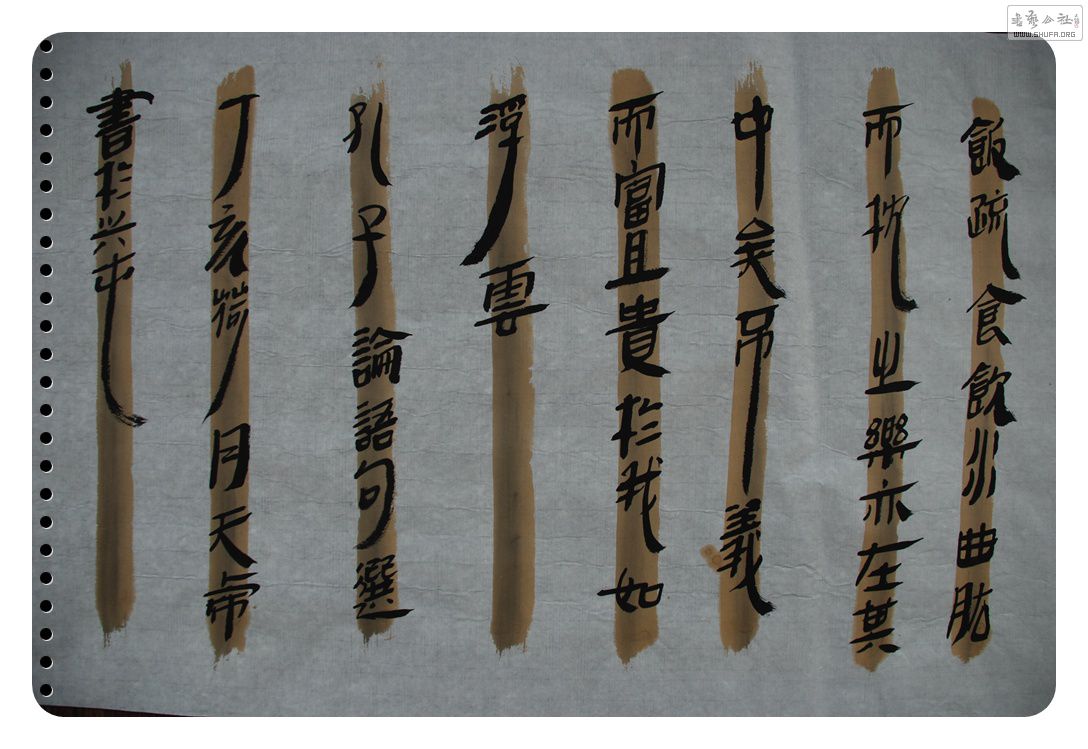 飯疏食飲水曲肱
而枕之樂亦在其
中矣不義
而富且貴於我如
浮雲
孔子論語句選
丁亥荷月天
書於兴
书艺公社
WWW.SHUFA.ORG